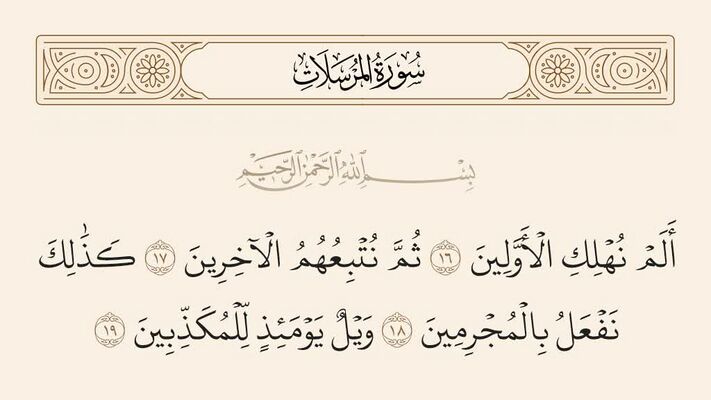 سُورَةُ المُرْسَلَاتِ
بِسْمِ اللَّهِ الرَّحْمَٰنِ الرَّحِيمِ
أَلَمْ نُهْلِكِ الْأَوَّلِينَ ١٦ ثُمَّ نُتْبِعُهُمُ الْآخِرِينَ ١٧ كَذَٰلِكَ
نَفْعَلُ بِالْمُجْرِمِينَ ١٨ وَيْلٌ يَوْمَئِذٍ لِّلْمُكَذِّبِينَ ١٩